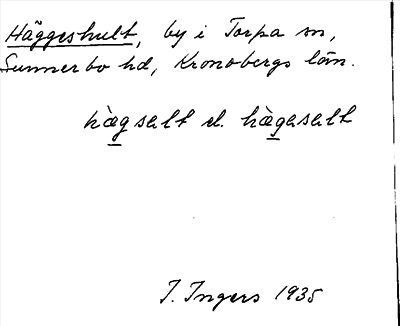 Häggeshult, by i Torpa sn,
Sunnerbo hd, Kronobergs län.
hàgsalt el. hàgasalt
I. Ingers 1935